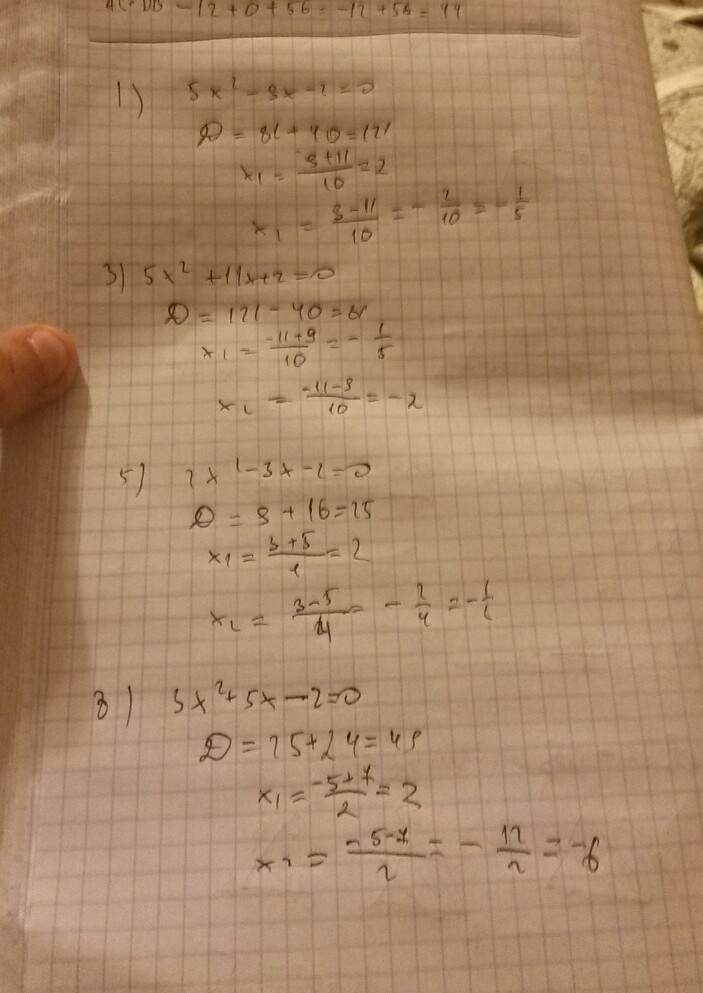 AC · DB = -12 + 0 + 56 = -12 + 56 = 44
1) 5x² - 9x - 2 = 0
D = 81 + 40 = 121
x₁ = (9+11)/10 = 2
x₂ = (9-11)/10 = -2/10 = -1/5
3) 5x² + 11x + 2 = 0
D = 121 - 40 = 81
x₁ = (-11+9)/10 = -1/5
x₂ = (-11-9)/10 = -2
5) 2x² - 3x - 2 = 0
D = 9 + 16 = 25
x₁ = (3+5)/4 = 2
x₂ = (3-5)/4 = -2/4 = -1/2
8) 3x² + 5x - 2 = 0
D = 25 + 24 = 49
x₁ = (-5+7)/2 = 2
x₂ = (-5-7)/2 = -12/2 = -6